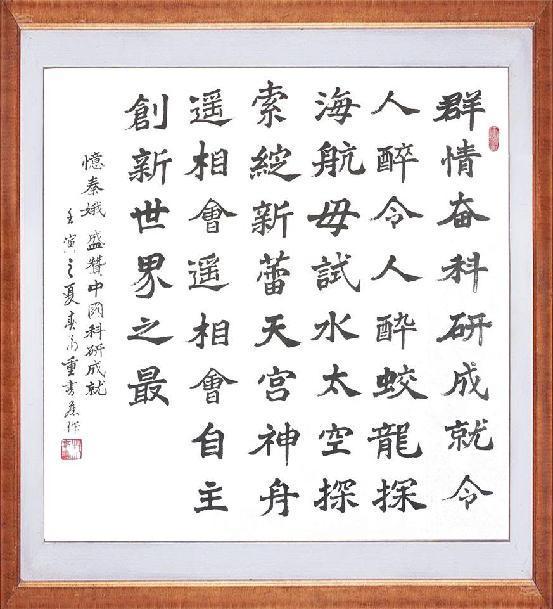 群情奋科研成就令
人醉令人醉蛟龍探
海航母試水太空探
索綻新蕾天宮神舟
遥相會遥相會自主
創新世界之最
憶秦娥 盛贊中國科研成就
壬寅之夏 重書舊作